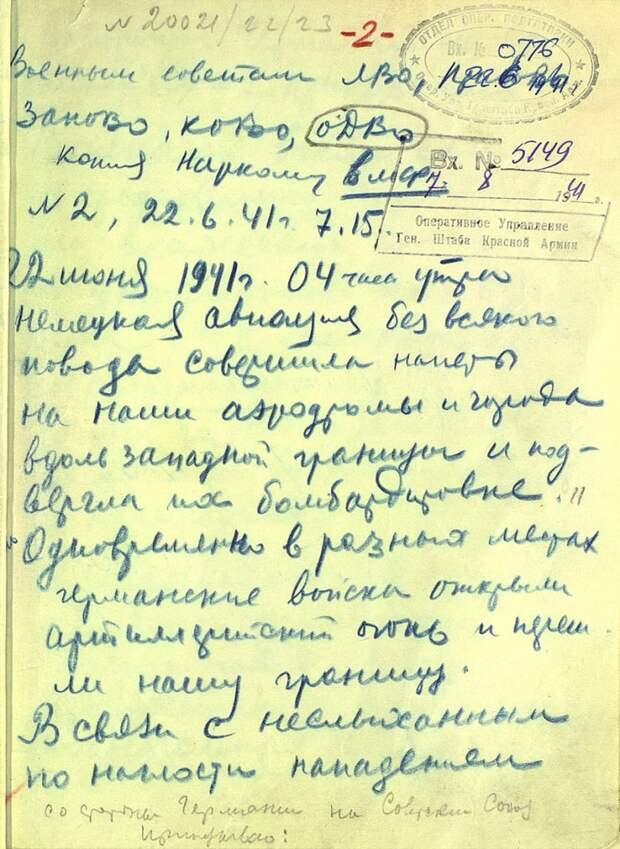 N 20021/22/23
-2-
ОТДЕЛ ОПЕР. ПОДГОТОВКИ
Вх. № 0776
Военным советам ЛВО, ПрибОВО
ЗапОВО, КОВО, ОДВО
копия Наркому ВМФ
Вх. № 5149
7. 8 1941 г.
Оперативное Управление
Ген. Штаба Красной Армии
N 2, 22.6.41г. 7.15.
22 июня 1941г. 04 часа утра
немецкая авиация без всякого
повода совершила налеты
на наши аэродромы и города
вдоль западной границы и под-
вергла их бомбардировке.
Одновременно в разных местах
германские войска открыли
артиллерийский огонь и переш-
ли нашу границу.
В связи с неслыханным
по наглости нападением
со стороны Германии на Советский Союз
приказываю: